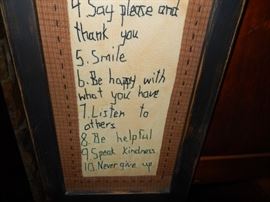 4. Say please and
thank you
5. Smile
6. Be happy with
what you have
7. Listen to
others
8. Be helpful
9. Speak Kindness
10. Never give up